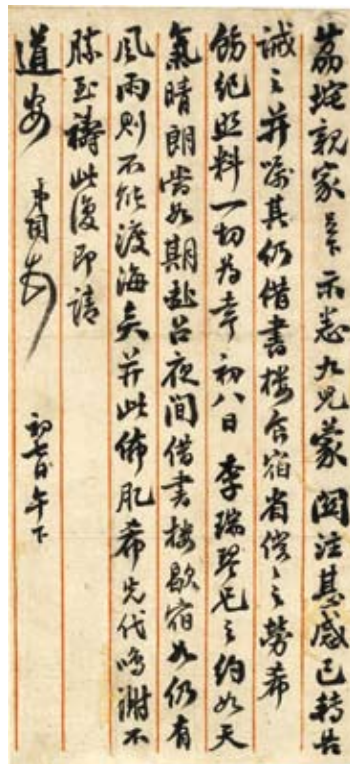 荔垞親家足下示悉九兒蒙 關注甚感已轉告
誡之并囑其仍借書樓食宿省偬〻之勞希
飭紀照料一切為幸初八日 李瑞琴兄之約如天
氣晴朗當如期赴召夜間借書樓歇宿如仍有
風雨則不能渡海矣并此佈肊希先代鳴謝不
勝至禱此復即請
道安 弟 初七日午下